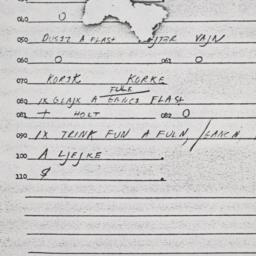 040
060 O
050 DUEST A FLASH STER VAIN
060 O 061 O
070 KORSK KORKE
TULE
080 IX GLAJX A EANCI FLASH
081 + HOLT 082 O
090 IX TRINK FUN A FULN, / EANCN
100 A LJEJKE .
110 $ .